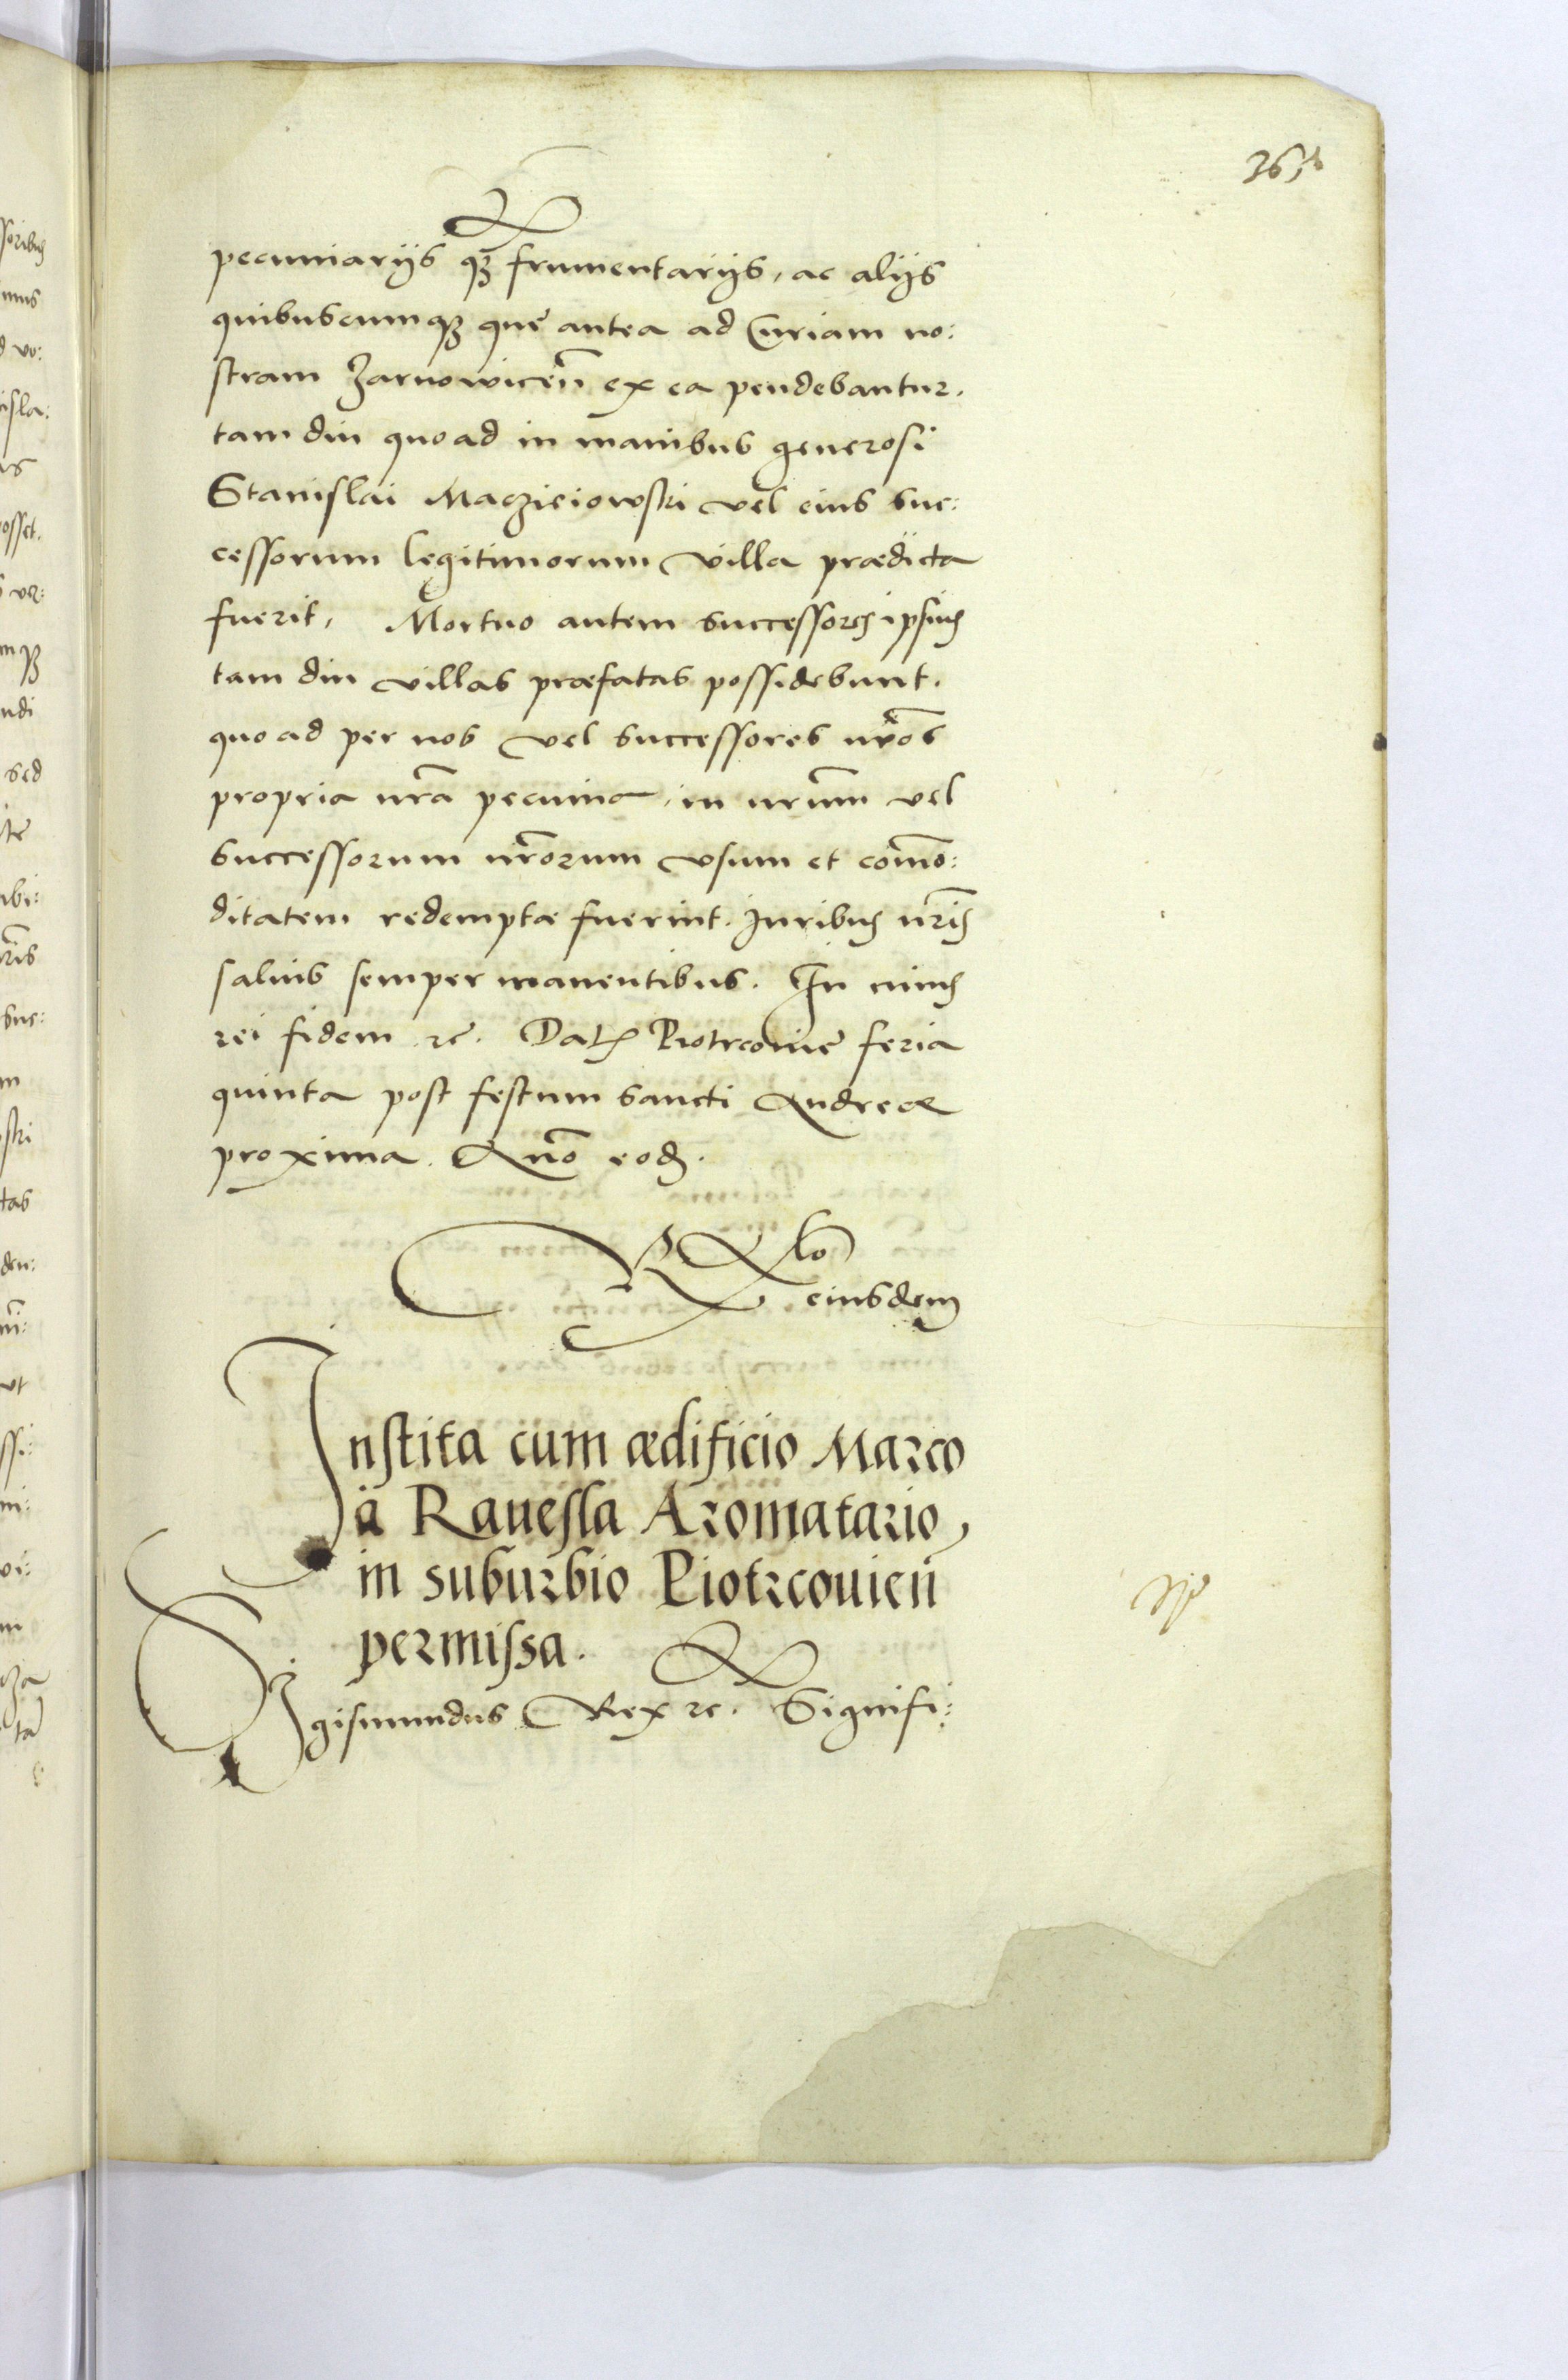 pecuniarijs qȝ frumentarijs, ac alijs
quibuscumqȝ quę antea ad Curiam no:
stram Zarnowiceñ ex ea pendebantur.
tam diu quoad in manibus generosi
Stanislai Maczieiowski vel eius suc:
cessorum legitimorum villa prædicta
fuerit, Mortuo autem successorꝫ ipsiꝰ
tam diu villas præfatas possidebunt.
quo ad per nos vel successores nr̃os
propria nr̃a pecunia, in nr̃um vel
successorum nr̃orum vsum et com̃o:
ditatem redemptæ fuerint. Juribꝰ nr̃is
saluis semper manentibus. In cuiꝰ
rei fidem ꝛc. Datꝭ Piotrcovię feria
quinta post festum sancti Andreæ
proxima. Anõ eodꝫ.
Rlõ
eiusdem
Instita cum ædificio Marco
à Ravesla Aromatario,
in suburbio Piotrcovień
permissa.
Sigismundus Rex ꝛc. Signifi: